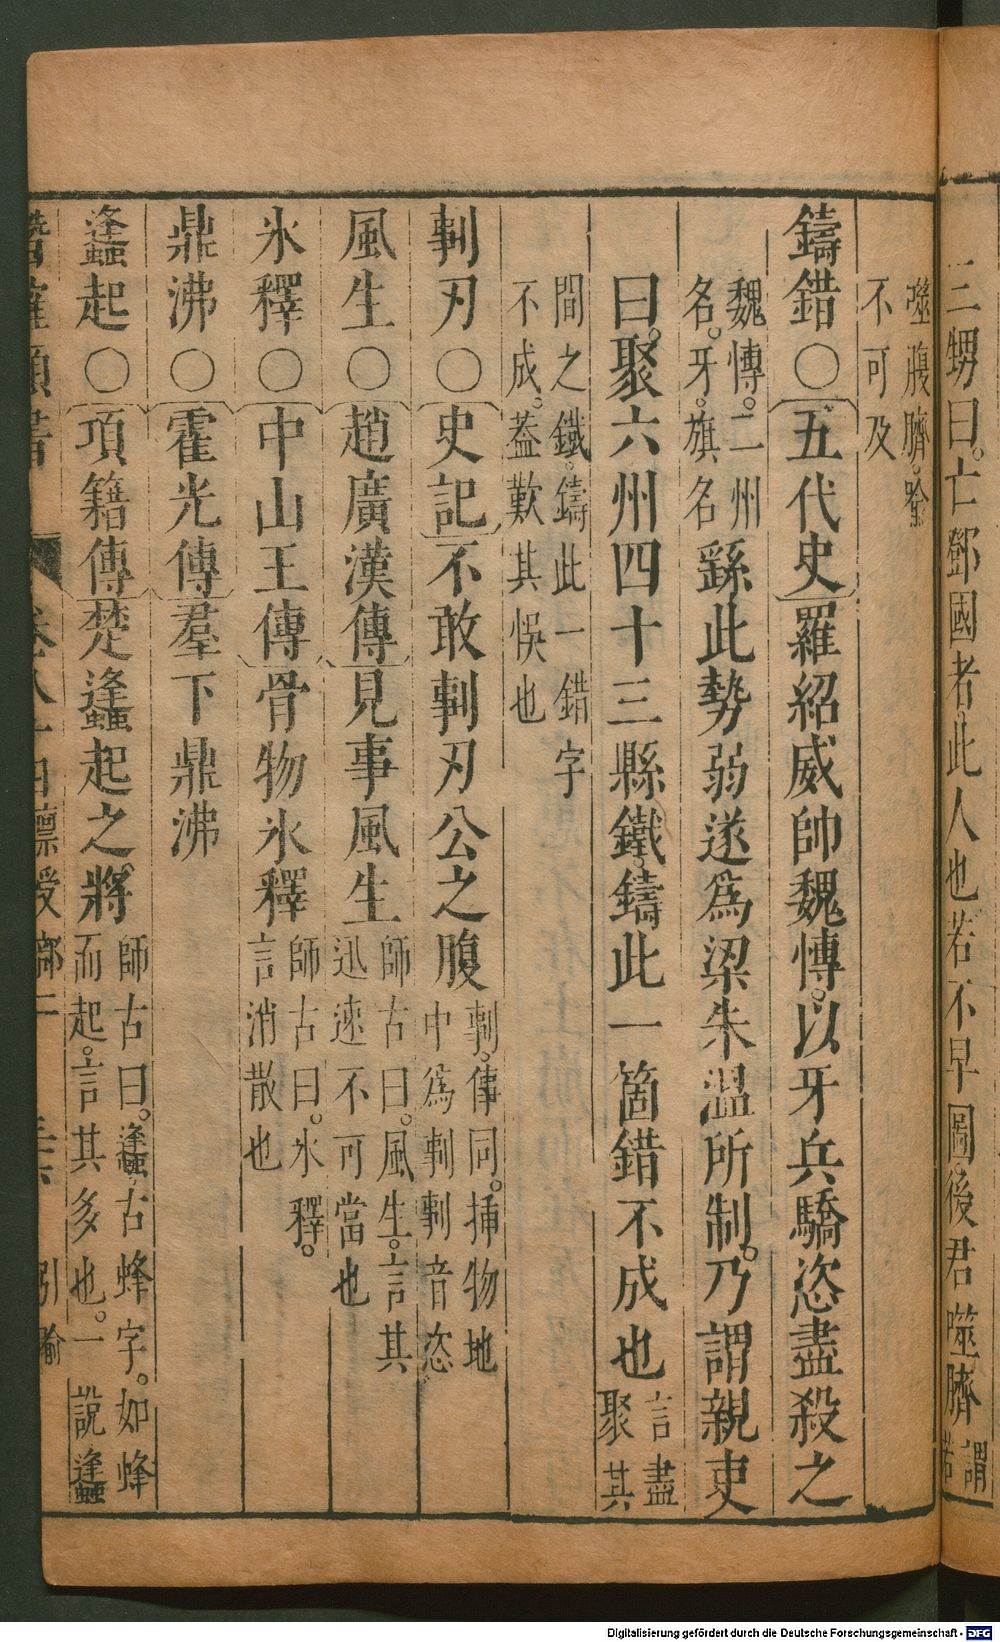 三甥曰。亡鄧國者。此人也。若不早圖。後君噬臍
謂
若
噬腹臍。喻
不可及
鑄錯○五代史羅紹威帥魏愽。以牙兵驕恣盡殺之
魏愽。二州
名。牙。旗名
繇此勢弱遂爲梁朱温所制。乃謂親吏
曰。聚六州四十三縣鐵。鑄此一箇錯不成也
言盡
聚其
間之鐵。鑄此一錯字
不成。葢歎其悞也
剚刃○史記不敢剚刃公之腹
剚。傳同。揷物地
中爲剚剚音恣
風生○趙廣漢傳見事風生
師古曰。風生。言其
迅速不可當也
氷釋○中山王傳骨物氷釋
師古曰。氷釋。
言消散也
鼎沸○霍光傳羣下鼎沸
蠭起○項籍傳楚蠭起之將
師古曰。蠭古蜂字。如蜂
而起。言其多也。一說蠭
類書
卷八十四
稟受部二
引喻
Digitalisierung gefördert durch die Deutsche Forschungsgemeinschaft - DFG